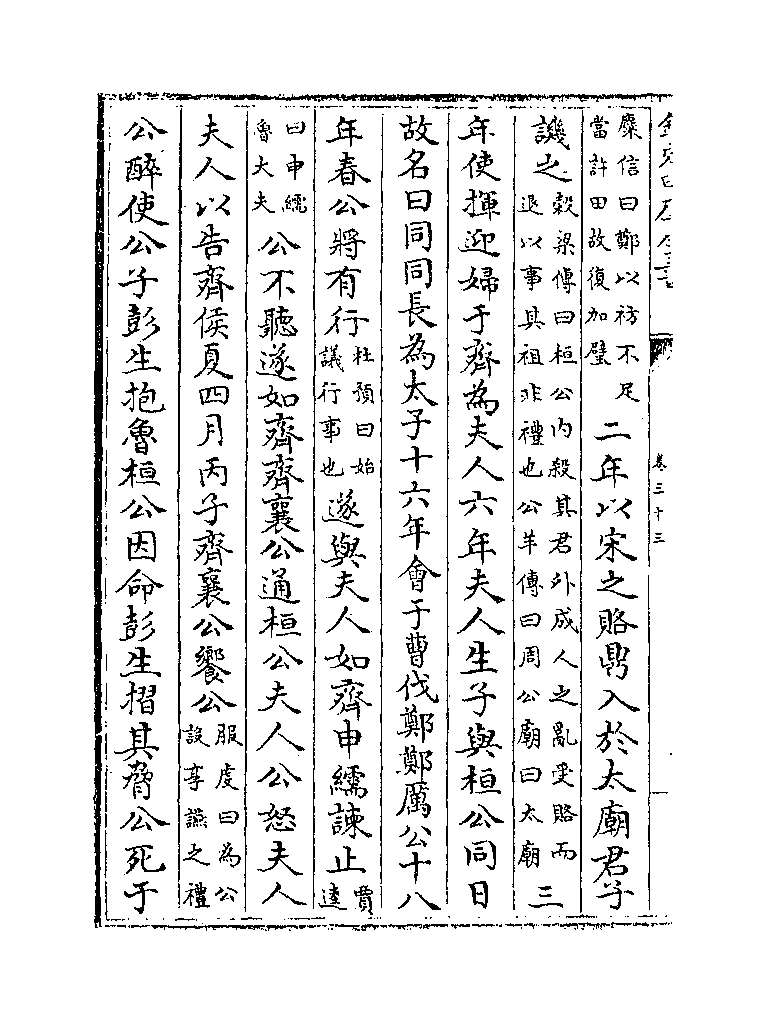 欽定四庫全書
卷三十三
糜信曰鄭以祊不足當許田故復加璧二年以宋之賂鼎入於太廟君子
譏之穀梁傳曰桓公内殺其君外成人之亂受賂而退以事其祖非禮也公羊傳曰周公廟曰太廟三
年使揮迎婦于齊為夫人六年夫人生子與桓公同日
故名曰同同長為太子十六年會于曹伐鄭鄭厲公十八
年春公將有行杜預曰始議行事也遂與夫人如齊申繻諫止賈逵
曰申繻魯大夫公不聽遂如齊齊襄公通桓公夫人公怒夫人
夫人以告齊侯夏四月丙子齊襄公饗公服虔曰為公設享讌之禮
公醉使公子彭生抱魯桓公因命彭生摺其脅公死于